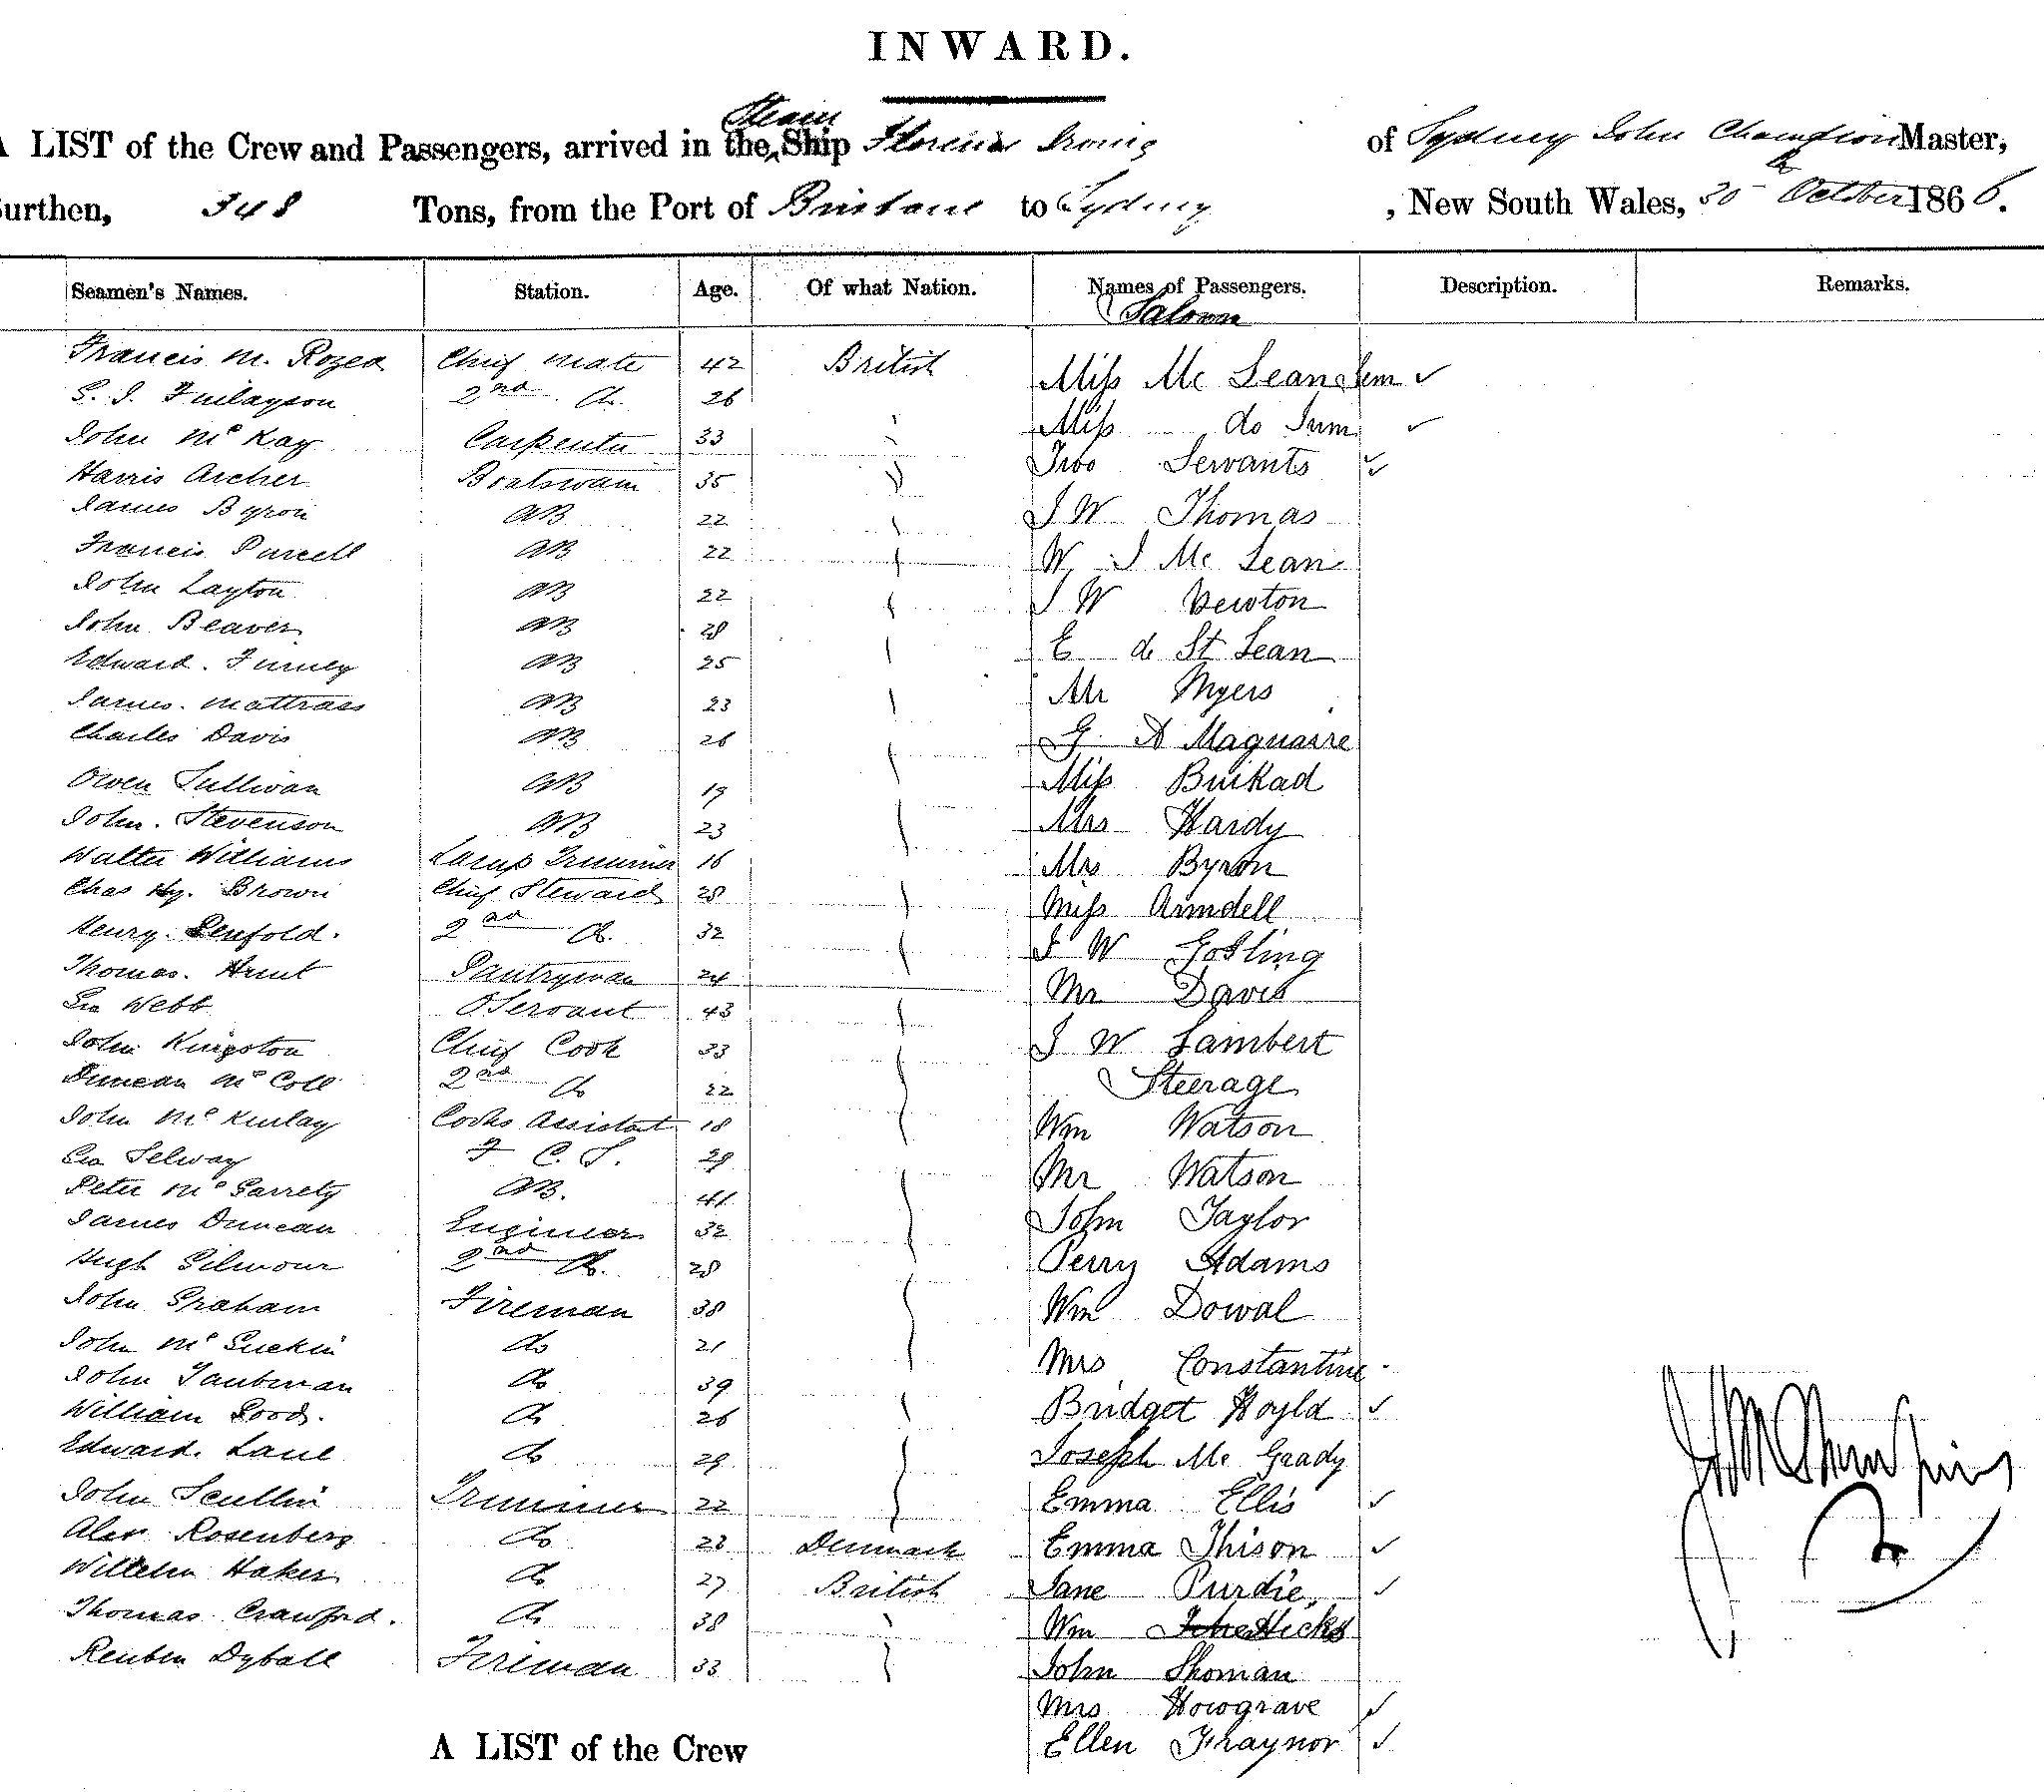 INWARD.
A LIST of the Crew and Passengers, arrived in the Steam Ship Florence Irving of Sydney John Champion Master,
Burthen, 348 Tons, from the Port of Brisbane to Sydney, New South Wales, 30th October 1866.
Seamen's Names. Station. Age. Of what Nation. Names of Passengers. Description. Remarks.
Saloon
Francis M. Rozea Chief Mate 42 British Miss Mc Lean Sen ✓
G. J. Finlayson 2nd do 26 Miss do Jun ✓
John McKay Carpenter 33 Two Servants ✓
Harris Archer Boatswain 35 J W Thomas
James Byron AB 22 W J Mc Lean
Francis Purcell AB 22 J W Newton
John Layton AB 22 E de St Jean
John Beaver AB 28 Mr Myers
Edward. Furney AB 25 G. A Maguaire
James. Mattrass AB 23 Miss Buikad
Charles Davis AB 26 Mrs Hardy
Owen Sullivan AB 19 Mrs Byron
John. Stevenson AB 23 Miss Arundell
Walter Williams Lamp Trimmer 16 J W Gosling
Chas Hy. Brown Chief Steward 28 Mr Davis
Henry. Penfold. 2nd do. 32 J W Lambert
Thomas. Hunt Pantryman 24 Steerage
Geo Webb OServant 43 Wm Watson
John Kingston Chief Cook 33 Mr Watson
Duncan McColl 2nd do 22 John Taylor
John McKinlay Cooks Assistant 18 Perry Adams
Geo Selway F C S. 29 Wm Dowal
Peter McGarrety AB. 41 Mrs Constantine
James Duncan Engineer 32 Bridget Hoyld ✓
Hugh Gilmour 2nd do. 28 Joseph Mc Grady
John Graham Fireman 38 Emma Ellis ✓
John McGuckin do 21 Emma Thison ✓
John Taubman do 39 Jane Purdie ✓
William Good. do 26 Wm Hicks
Edward. Lane do 29 John Shoman
John Scullin Trimmer 22 Mrs Howgrave ✓
Alex Rosenberg do 23 Denmark Ellen Traynor ✓
Wilhelm Haker do 27 British
Thomas Crawford. do 38
Reuben Dyball Fireman 33
A LIST of the Crew